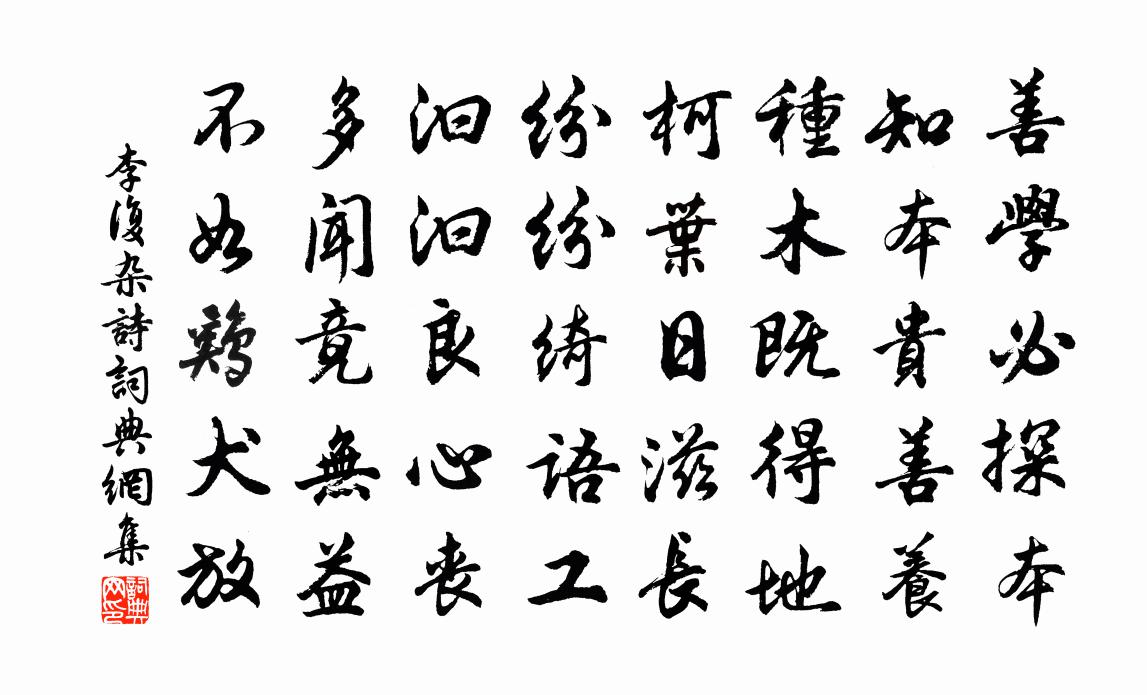 善學必探本
知本貴善養
種木既得地
柯葉日滋長
紛紛綺語工
汩汩良心喪
多聞竟無益
不如鷄犬放
李復杂詩詞典網集
詞典
网印